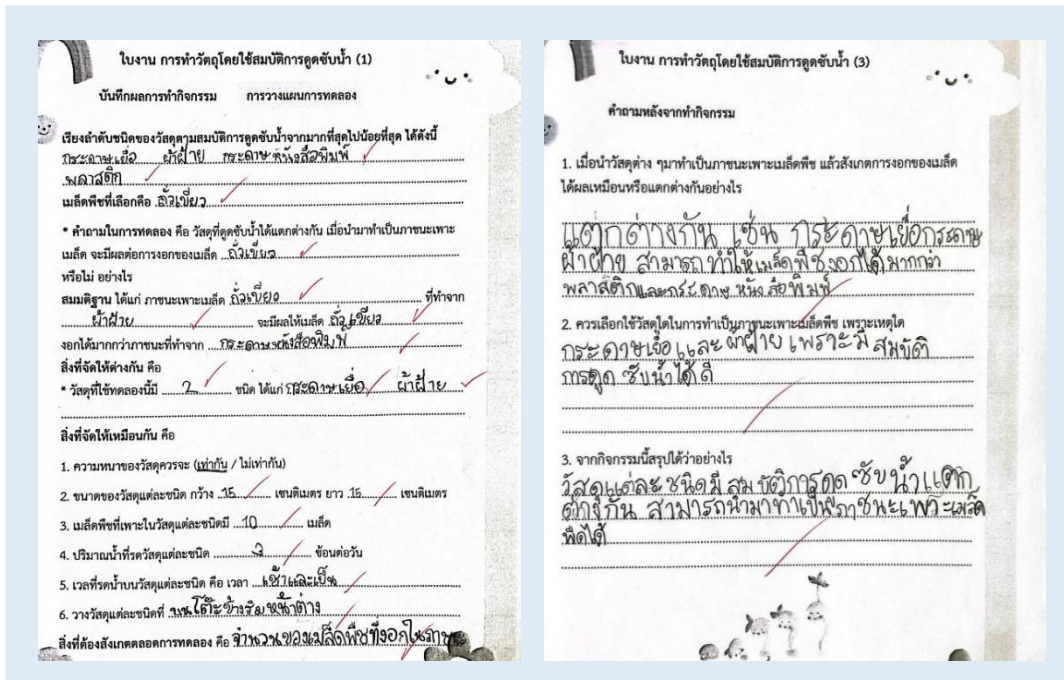 ใบงาน การทำวัตถุโดยใช้สมบัติการดูดซับน้ำ (1)
บันทึกผลการทำกิจกรรม การวางแผนการทดลอง
เรียงลำดับชนิดของวัสดุตามสมบัติการดูดซับน้ำจากมากที่สุดไปน้อยที่สุด ได้ดังนี้
กระดาษเยื่อ ผ้าฝ้าย กระดาษหนังสือพิมพ์
พลาสติก
เมล็ดพืชที่เลือกคือ ถั่วเขียว
* คำถามในการทดลอง คือ วัสดุที่ดูดซับน้ำได้แตกต่างกัน เมื่อนำมาทำเป็นภาชนะเพาะ
เมล็ด จะมีผลต่อการงอกของเมล็ด ถั่วเขียว
หรือไม่ อย่างไร
สมมติฐาน ได้แก่ ภาชนะเพาะเมล็ด ถั่วเขียว ที่ทำจาก
ผ้าฝ้าย จะมีผลให้เมล็ด ถั่วเขียว
งอกได้มากกว่าภาชนะที่ทำจาก กระดาษหนังสือพิมพ์
สิ่งที่จัดให้ต่างกัน คือ
* วัสดุที่ใช้ทดลองนี้มี 2 ชนิด ได้แก่ กระดาษเยื่อ ผ้าฝ้าย
สิ่งที่จัดให้เหมือนกัน คือ
1. ความหนาของวัสดุควรจะ (เท่ากัน / ไม่เท่ากัน)
2. ขนาดของวัสดุแต่ละชนิด กว้าง 15 เซนติเมตร ยาว 15 เซนติเมตร
3. เมล็ดพืชที่เพาะในวัสดุแต่ละชนิดมี 10 เมล็ด
4. ปริมาณน้ำที่รดวัสดุแต่ละชนิด 3 ช้อนต่อวัน
5. เวลที่รดน้ำบนวัสดุแต่ละชนิด คือ เวลา เช้าและเย็น
6. วางวัสดุแต่ละชนิดที่ บนโต๊ะข้างริมหน้าต่าง
สิ่งที่ต้องสังเกตตลอดการทดลอง คือ จำนวนของเมล็ดพืชที่งอกในภาชนะ
ใบงาน การทำวัตถุโดยใช้สมบัติการดูดซับน้ำ (3)
คำถามหลังจากทำกิจกรรม
1. เมื่อนำวัสดุต่าง ๆมาทำเป็นภาชนะเพาะเมล็ดพืช แล้วสังเกตการงอกของเมล็ด
ได้ผลเหมือนหรือแตกต่างกันอย่างไร
แตกต่างกัน เช่น กระดาษเยื่อกระดาษ
ผ้าฝ้าย สามารถทำให้เมล็ดพืชงอกได้มากกว่า
พลาสติกและกระดาษ หนังสือพิมพ์
2. ควรเลือกใช้วัสดุใดในการทำเป็นภาชนะเพาะเมล็ดพืช เพราะเหตุใด
กระดาษเยื่อและ ผ้าฝ้าย เพราะมี สมบัติ
การดูด ซับน้ำได้ดี
3. จากกิจกรรมนี้สรุปได้ว่าอย่างไร
วัสดุแต่ละ ชนิดมี สมบัติการดูด ซับ น้ำ แตก
ต่างกัน สามารถนำมาทำเป็นภาชนะเพาะเมล็ด
พืดได้